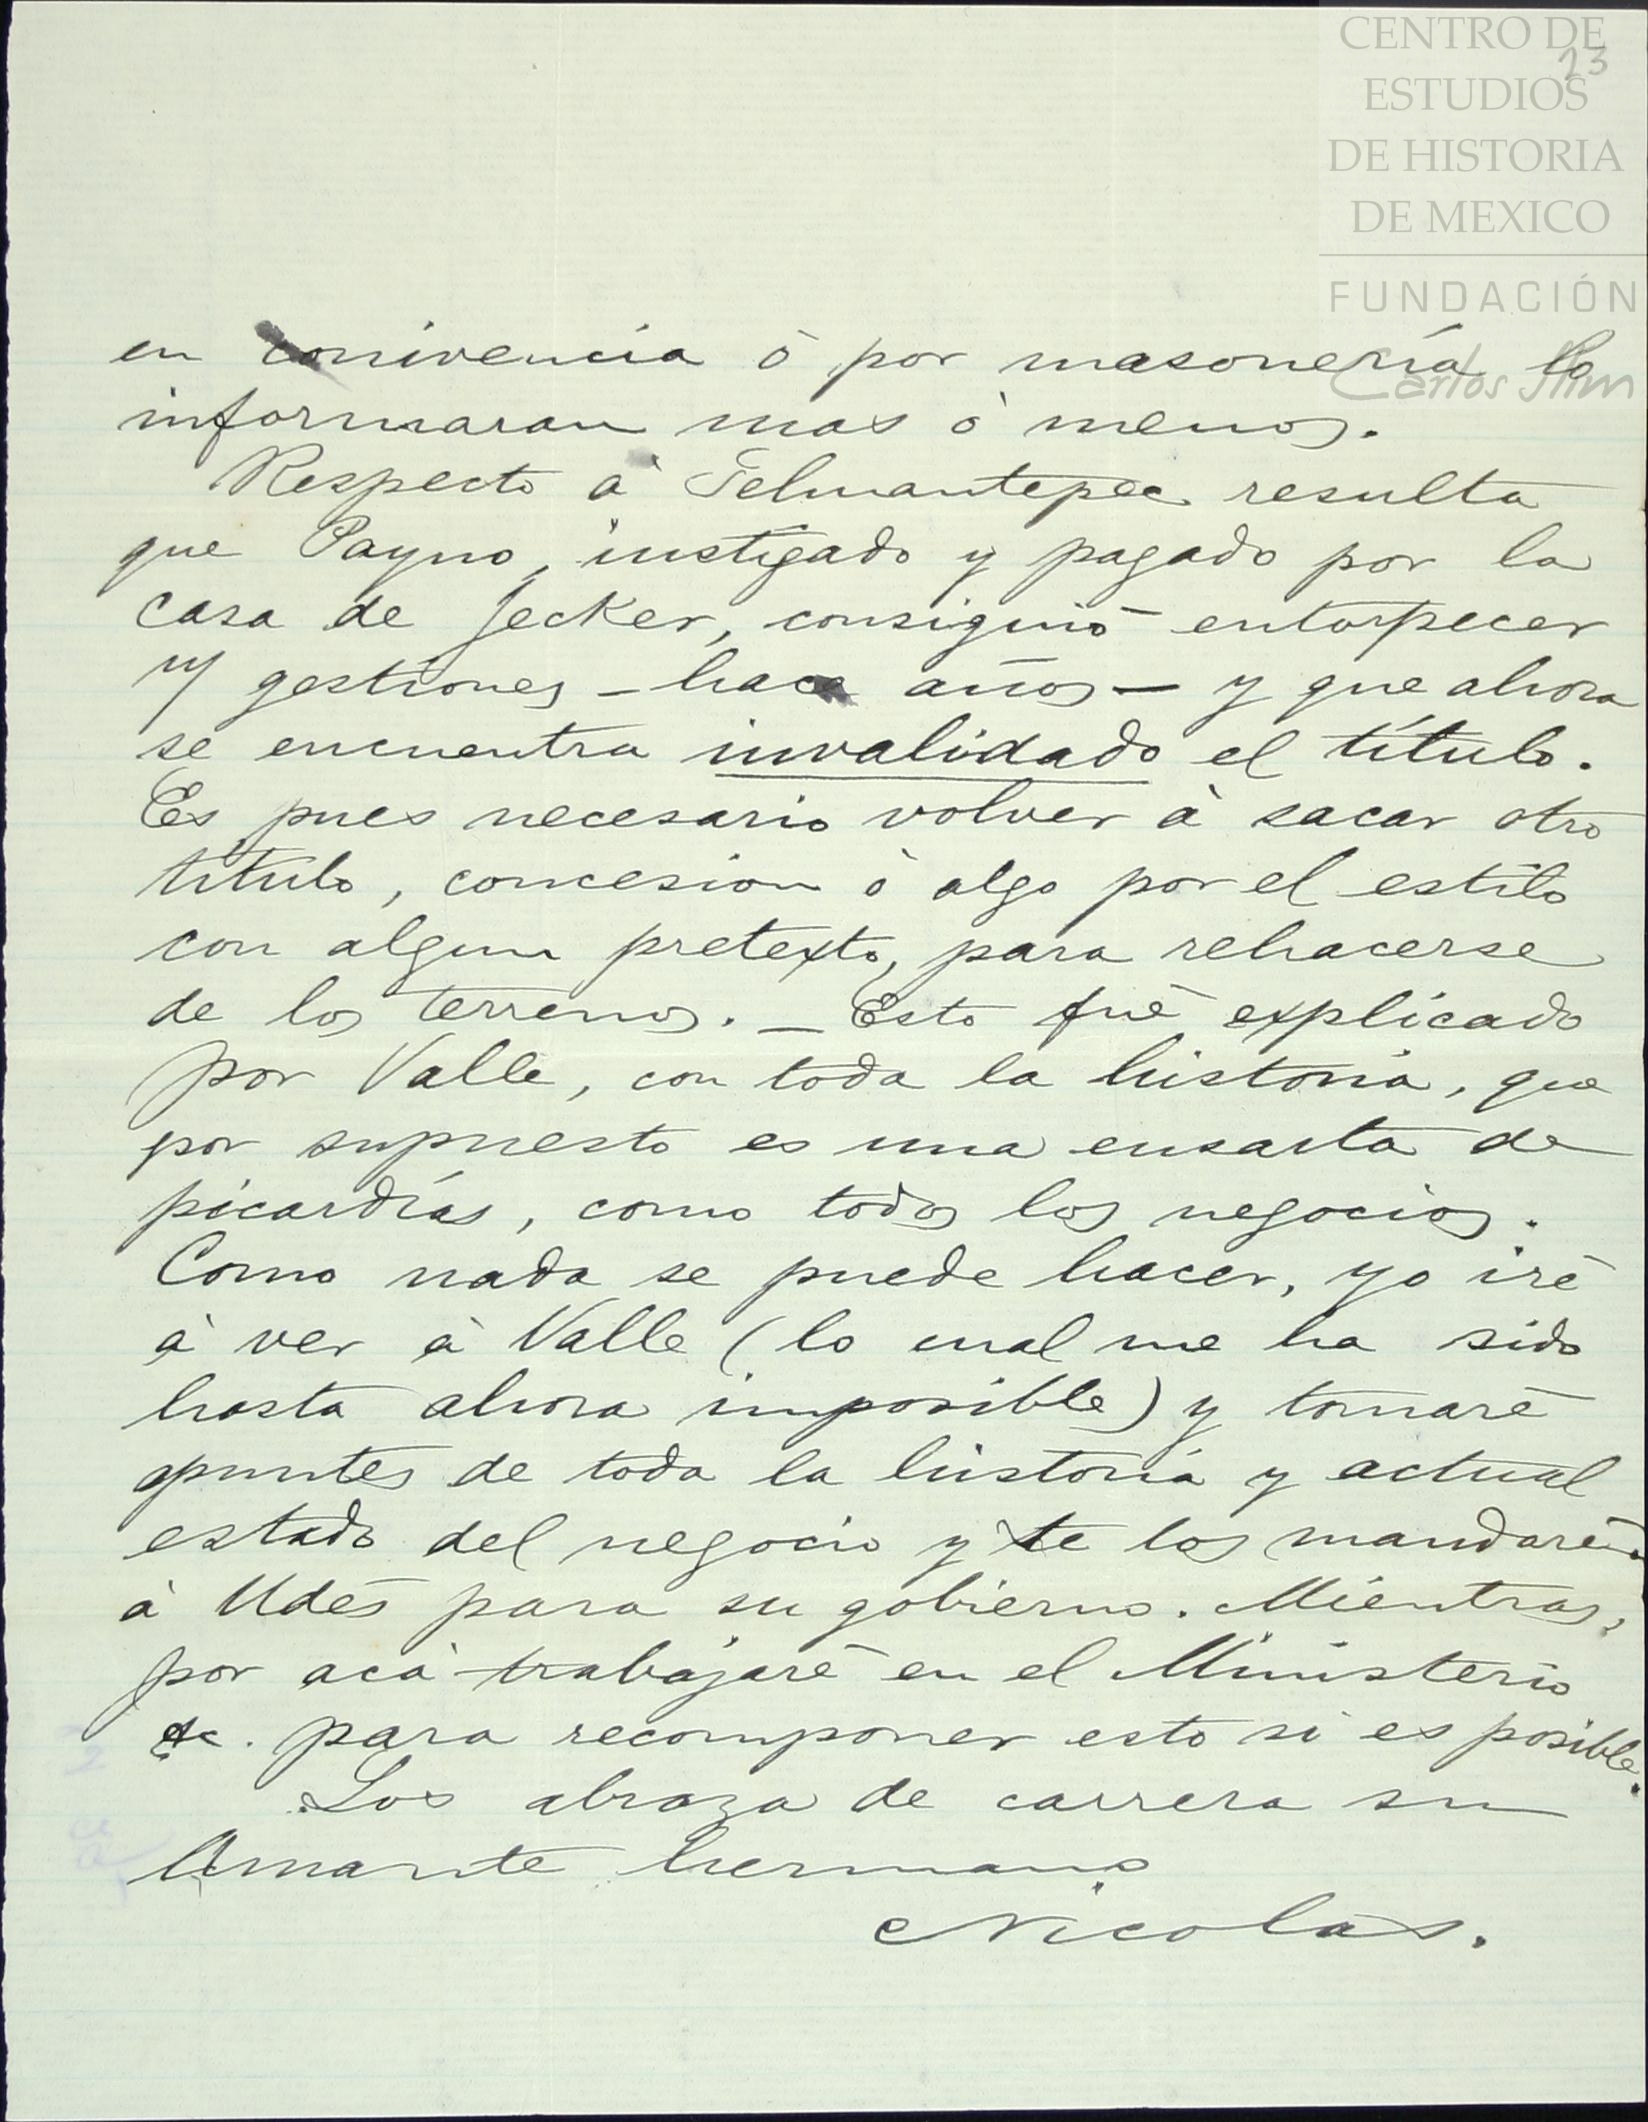 CENTRO DE
23
ESTUDIOS
DE HISTORIA
DE MEXICO
FUNDACIÓN
Carlos Slim
en conivencia ó por masonería lo
informaran mas ó menos.
Respecto á Tehuantepec resulta
que Payno, instigado y pagado por la
casa de Jecker, consiguió entorpecer
gestiones - hace años - y que ahora
se encuentra invalidado el título.
Es pues necesario volver á sacar otro
título, concesion ó algo por el estilo
con algun pretexto, para rehacerse
de los terrenos. - Esto fué explicado
por Valle, con toda la historia, que
por supuesto es una ensarta de
picardías, como todos los negocios.
Como nada se puede hacer, yo iré
á ver á Valle (lo cual me ha sido
hasta ahora imposible) y tomaré
apuntes de toda la historia y actual
estado del negocio y te los mandaré
á Udes para su gobierno. Mientras,
por acá trabajaré en el Ministerio
etc. para recomponer esto si es posible.
Los abraza de carrera su
Amante hermano
Nicolas.